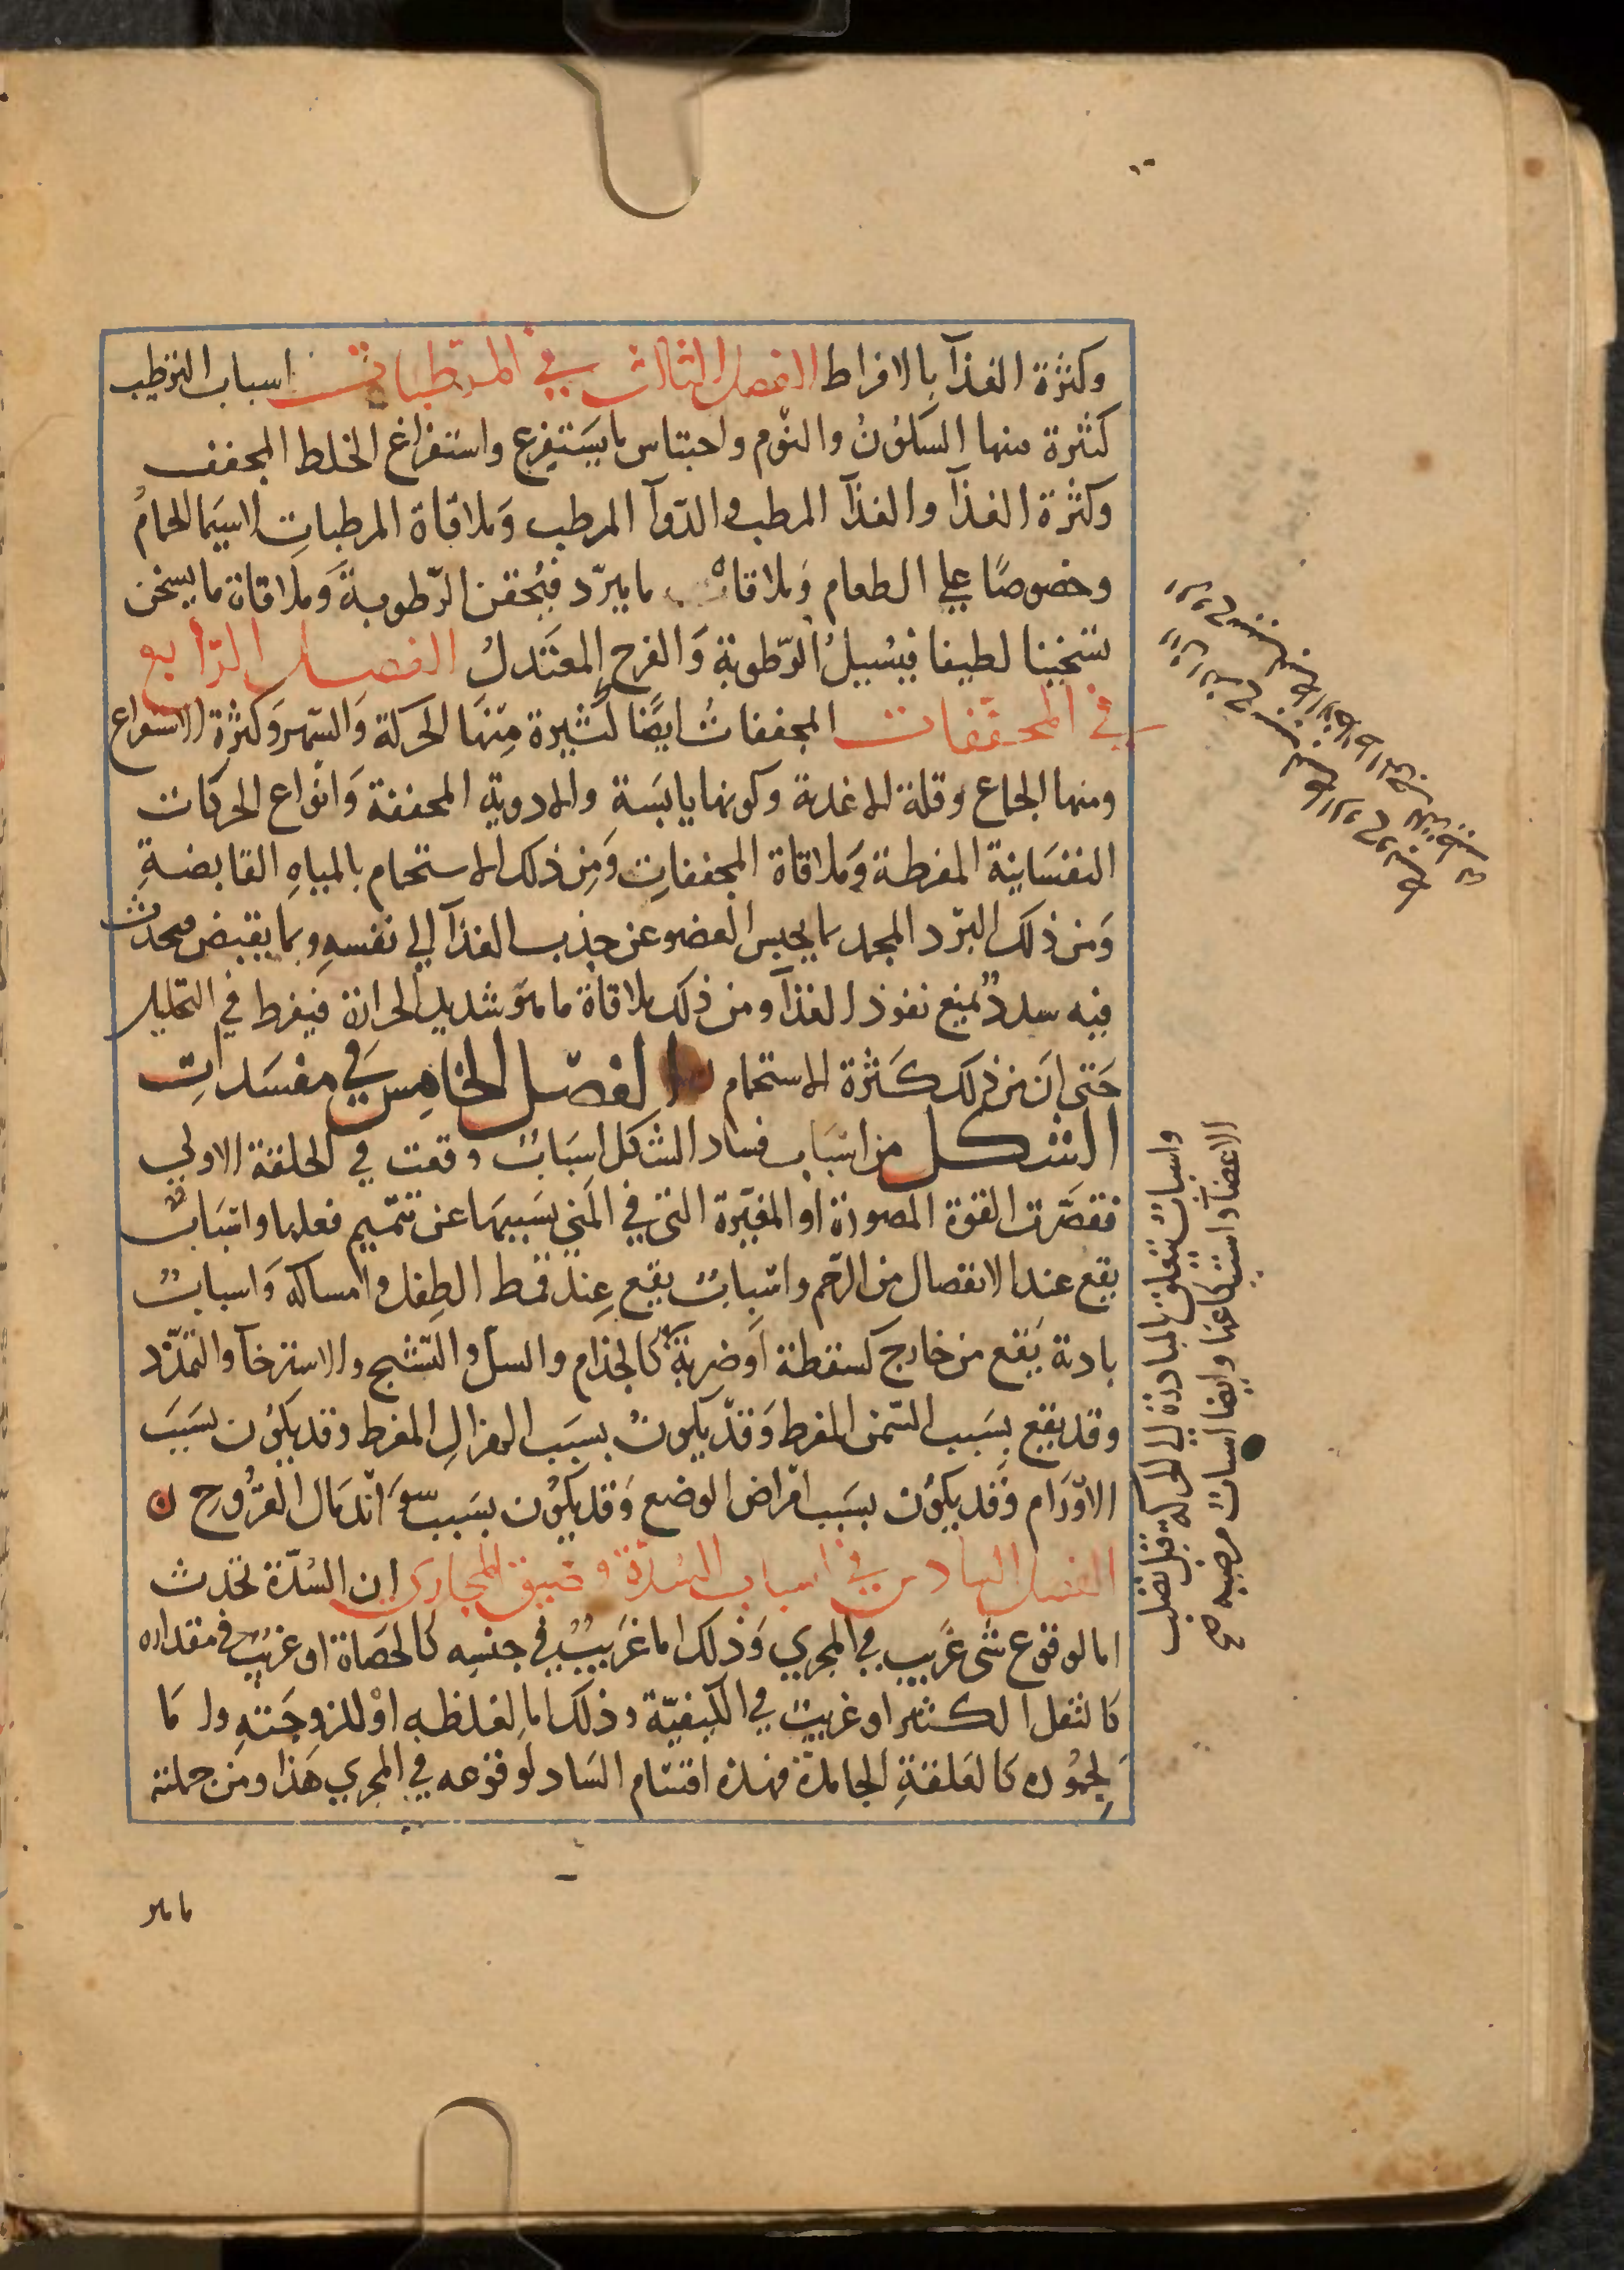 وكثرة الغذآ بالافراط الفصل الثالث في المرطبات اسباب الترطيب
كثثرة منها السكون والنوم واحتباس ما يستفرغ واستفراغ الخلط المجفف
وكثرة الغذآ والغذآ المرطب والدوآ المرطب وملاقاة المرطبات لاسيما الحمام
وخصوصًا علي الطعام وملاقاة ما يبرّد فيحقن الرّطوبة وملاقاة ما يسخن
تسخينا لطيفا فيسيل الرّطوبة والفرح المعتدل الفصل الرّابع
في المجففات المجففات ايضًا كثيرة منها الحركة والسهر وكثرة الاستفراغ
ومنها الجماع وقلة الاغذية وكونها يابسة والادوية المجففة وانواع الحركات
النفسانية المفرطة وملاقاة المجففات ومن ذلك الاستحمام بالمياه القابضة
ومن ذلك البرّد المجمد بما يحبس العضو عن جذب الغذآ الي نفسه وبما يقبض فيحدث
فيه سددٌ تمنع نفوذ الغذآ ومن ذلك ملاقاة ما هو شديد الحرارة فيفرط في التحليل
حتي ان من ذلك كثرة الاستحمام الفصل الخامس في مفسدات
الشكل من اسباب فساد الشكل اسباب وقعت في الخلقة الاولي
فقصّرت القوة المصورة او المغيّرة التي في المني بسببها عن تتميم فعلها واسباب
يقع عند الانفصال من الرّحم واسباب يقع عند قمط الطفل وامساكه واسباب
بادية يقع من خارج كسقطة او ضربة كالجذام والسل والتشنج والاسترخآ والتمدّد
وقد يقع بسبب السّمن المفرط وقد يكون بسبب الهزال المفرط وقد يكون بسبب
الاورام وقد يكون بسبب امراض الوضع وقد يكون بسبب سوء اندمال القروح
الفصل السادس في اسباب السّدّة وضيق المجاري ان السّدّة تحدث
اما لوقوع شي غريب في المجري وذلك اما غريب في جنسه كالحصاة او غريب في مقداره
كالثفل الكثير او غريب في الكيفيّة وذلك اما لغلظه او للزوجته واما
لجموده كالعلقة الجامدة فهذه اقسام السّاد لوقوعه في المجري هذا ومن جملته
ما هو
واسباب تتعلق بالمبادرة الي الحركة قبل تصلب
الاعضآ واسباب مرضية صح